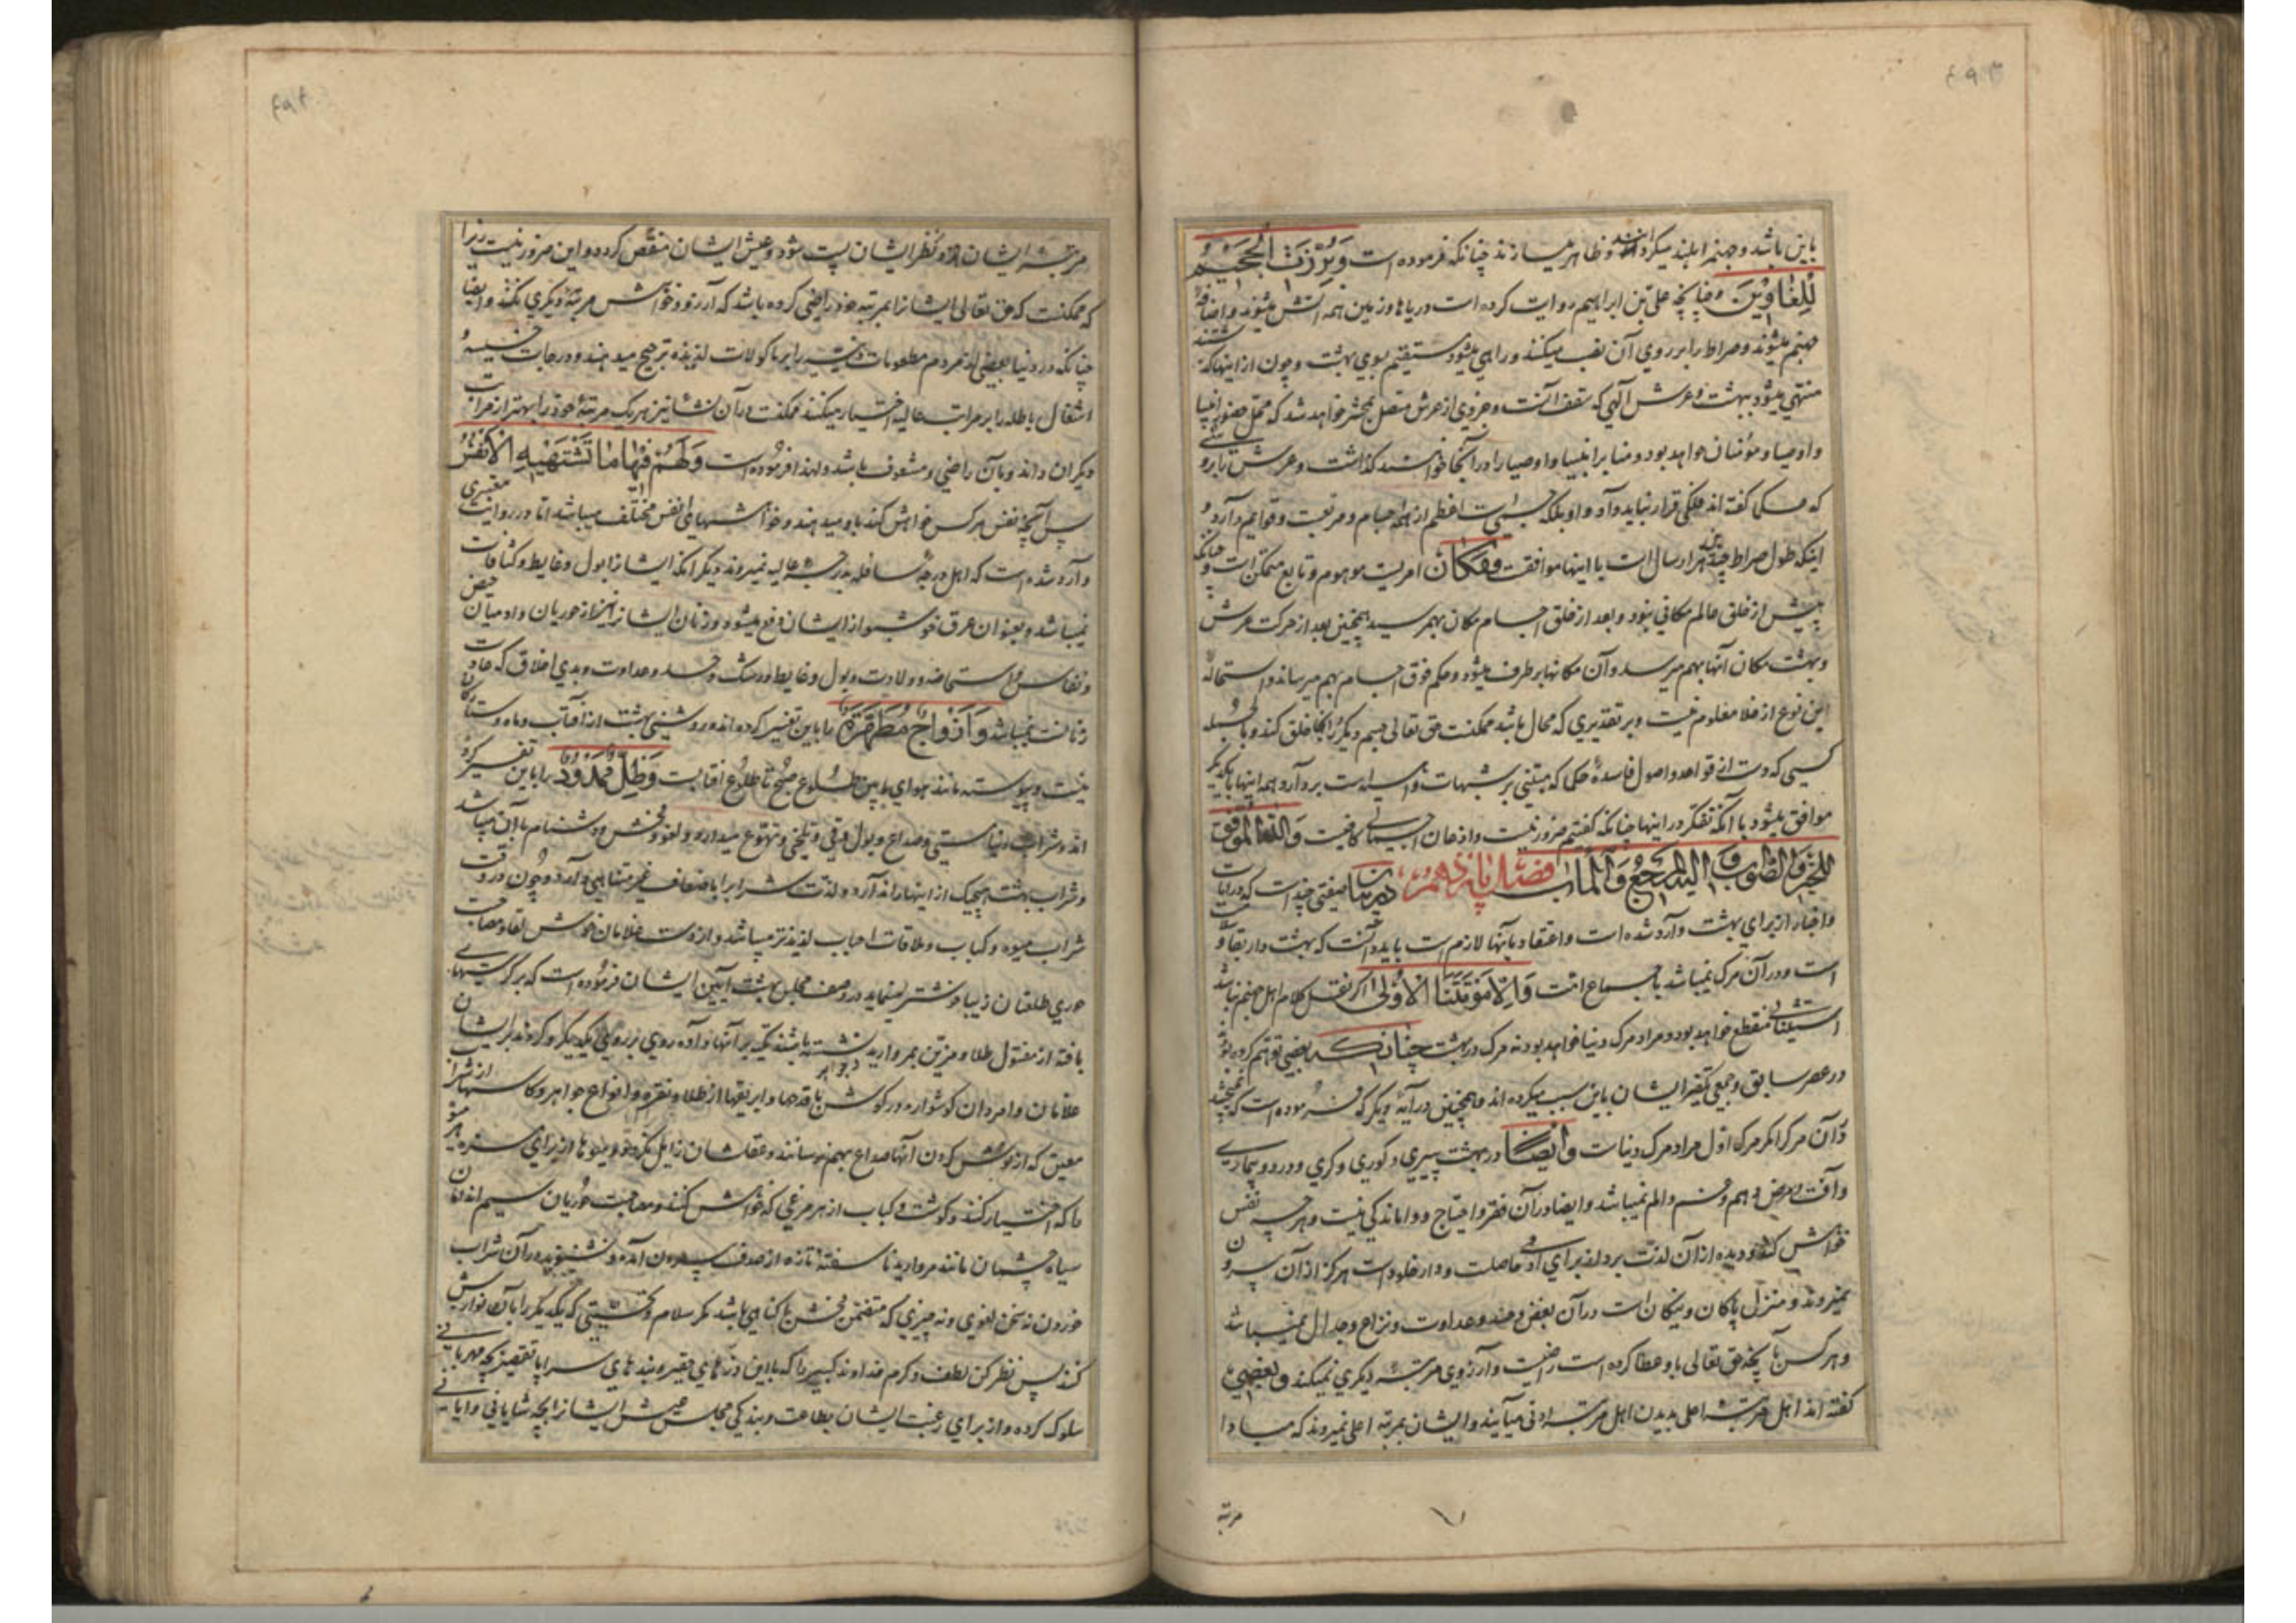 باین باشد و جهنم را بلند میکردانند و ظاهر میسازند چنانکه فرموده است وَبُرِّزَتِ الْجَحِیمُ
لِلْغَاوِینَ و چنانچه علی بن ابراهیم روایت کرده است دریاها و زمین همه آتش میشوند و اضافهٔ
جهنم میشوند و صراط را بر روی آن نصب میکنند و راهی میشود مستقیم بسوی بهشت و چون از اینها گذشتند
منتهی میشود ببهشت و عرش الهی که سقف آنست و جزوی از عرش متصل بمحشر خواهد شد که محل حضور انبیا
و اوصیا و مؤمنان خواهد بود و منابر انبیا و اوصیا را در آنجا خواهند گذاشت و عرش را برو
که حکما گفته اند فلکی قرار نباید داد و او بلکه جسمی است اعظم از همه اجسام و مربعست و قوایم دارد و
اینکه طول صراط چند هزار سال است با اینها موافقست و مکان امریست موهوم و تابع متمکن است و چنانکه
پیش از خلق عالم مکانی نبود و بعد از خلق اجسام مکان بهم رسید همچنین بعد از حرکت عرش
و بهشت مکان آنها بهم میرسد و آن مکانها برطرف میشود و حکم فوق اجسام بهم میرساند و استحاله
این نوع از خلا معلوم نیست و بر تقدیری که محال باشد ممکنست حق تعالی جسم دیگر را آنجا خلق کند و بالجمله
کسی که دست از قواعد و اصول فاسدهٔ حکما که مبتنی بر شبهات واهیه است بردارد همه اینها با یکدیگر
موافق میشود با آنکه تفکر در اینها چنانکه گفتیم ضرور نیست و اذعان اجمالی کافیست والله الموفق
للخیر والصواب و الیه المرجع والمآب فصل پانزدهم در بیان صفتی چند است که در آیات
و اخبار از برای بهشت وارد شده است و اعتقاد بآنها لازم است باید دانست که بهشت دار بقا و
است و در آن مرک نمیباشد باجماع امت وَ اِلّا مَوْتَتَنَا الْاُولی اکر نقل کلام اهل جهنم نباشد
استثنای منقطع خواهد بود و مراد مرک دنیا خواهد بود نه مرک در بهشت چنانکه بعضی توهم کرده بودند
در عصر سابق و جمعی تکفیر ایشان باین سبب میکرده اند و همچنین در آیهٔ دیگر که فرموده است که نمیچشند
در آن مرک را مکر مرک اول مراد مرک دنیاست و ایضا در بهشت پیری و کوری و کری و درد و بیماری
و آفت و مرض و هم و غم و الم نمیباشد و ایضا در آن فقر و احتیاج و واماندگی نیست و هرچه نفس
خواهش کند و دیده از آن لذت برد از برای آدمی حاصلست و دار خلود است هرکز از آن بیرون
نمیروند و منزل پاکان و نیکان است در آن بغض و حسد و عداوت و نزاع و جدال نمیباشد
و هر کس بآنچه حق تعالی باو عطا کرده است راضیست و آرزوی مرتبه دیگری نمیکند و بعضی
گفته اند اهل مرتبه اعلی بدیدن اهل مرتبه ادنی میآیند و ایشان بمرتبه اعلی نمیروند که مبادا
مرتبه
مرتبه ایشان در نظر ایشان پست شود و عیش ایشان منغص کردد و این ضرور نیست زیرا
که ممکنست که حق تعالی ایشانرا بمرتبه خود راضی کرده باشد که آرزو و خواهش مرتبهٔ دیگری نکند و ایضا
چنانکه در دنیا بعضی از مردم مطعومات دنیه را بر ماکولات لذیذه ترجیح میدهند و درجات خسیسه و
اشغال باطله را بر مراتب عالیه اختیار میکنند ممکنست در آن نشأ نیز هر یک مرتبهٔ خود را بهتر از مراتب
دیکران داند و بآن راضی و مشعوف باشد و لهذا فرموده است وَلَهُمْ فِیهَا مَا تَشْتَهِیهِ الْاَنْفُسُ
پس آنچه نفس هر کس خواهش کند باو میدهند و خواهشهای انفس مختلف میباشد اما در روایت معتبری
وارد شده است که اهل درجهٔ سافله بدرجه عالیه نمیروند دیگر آنکه ایشانرا بول و غایط و کثافات
نمیباشد و بعنوان عرق خوشبو از ایشان دفع میشود و زنان ایشانرا نیز از حوریان و آدمیان حیض
و نفاس و استحاضه و ولادت و بول و غایط و رشک و حسد و عداوت و بدی اخلاق که عادت
زنانست نمیباشد وَ اَزْوَاجٌ مُطَهَّرَةٌ را باین تفسیر کرده اند و روشنی بهشت از آفتاب و ماه و ستارگان
نیست و پیوسته مانند هوای مابین طلوع صبح تا طلوع آفتابست وَظِلٍّ مَمْدُودٍ را باین تفسیر کرده
اند و شراب دنیا مستی و صداع و بول و قی و تلخی و تهوع میدارد و لغو و فحش و دشنام با آن میباشد
و شراب بهشت هیچیک از اینها را ندارد و لذت شراب را باضعاف غیر متناهی دارد و چون در وقت
شراب میوه و کباب و ملاقات احباب لذیذتر میباشد و از دست غلامان خوش لقا و مصاحبت
حوری طلعتان زیبا خوشتر مینماید در وصف مجلس بهشت آیین ایشان فرموده است که بر کرسیهای
بافته از مفتول طلا و مزین بمروارید و جواهر نشسته باشند تکیه بر آنها داده روی بر روی یکدیگر و گردند بر ایشان
غلامان و امردان گوشواره در گوش با قدحها و ابریقها از طلا و نقره و انواع جواهر و کاسها از شراب
معین که از نوش کردن آنها صداع بهم نرسانند و عقلشان زایل نکردد و میوه ها از برای ایشان از هر میوه
ما که اختیار کنند و کوشت و کباب از هر مرغی که خواهش کنند و مصاحبت حوریان سیم اندام
سیاه چشمان مانند مروارید ناسفتهٔ تازه از صدف بیرون آمده و نشنوند در آن شراب
خوردن نه سخن لغوی و نه چیزی که متضمن فحش یا کناهی باشد مکر سلام و تحیتی که یکدیگر را بآن نوازش
کنند پس نظر کن لطف و کرم خداوند کبیر را که با این ذرهای حقیر و بندهای سراپا تقصیر بچه مهربانی
سلوک کرده و از برای رغبت ایشان بطاعت و بندگی مجلس عیش ایشانرا بچه شایانی و